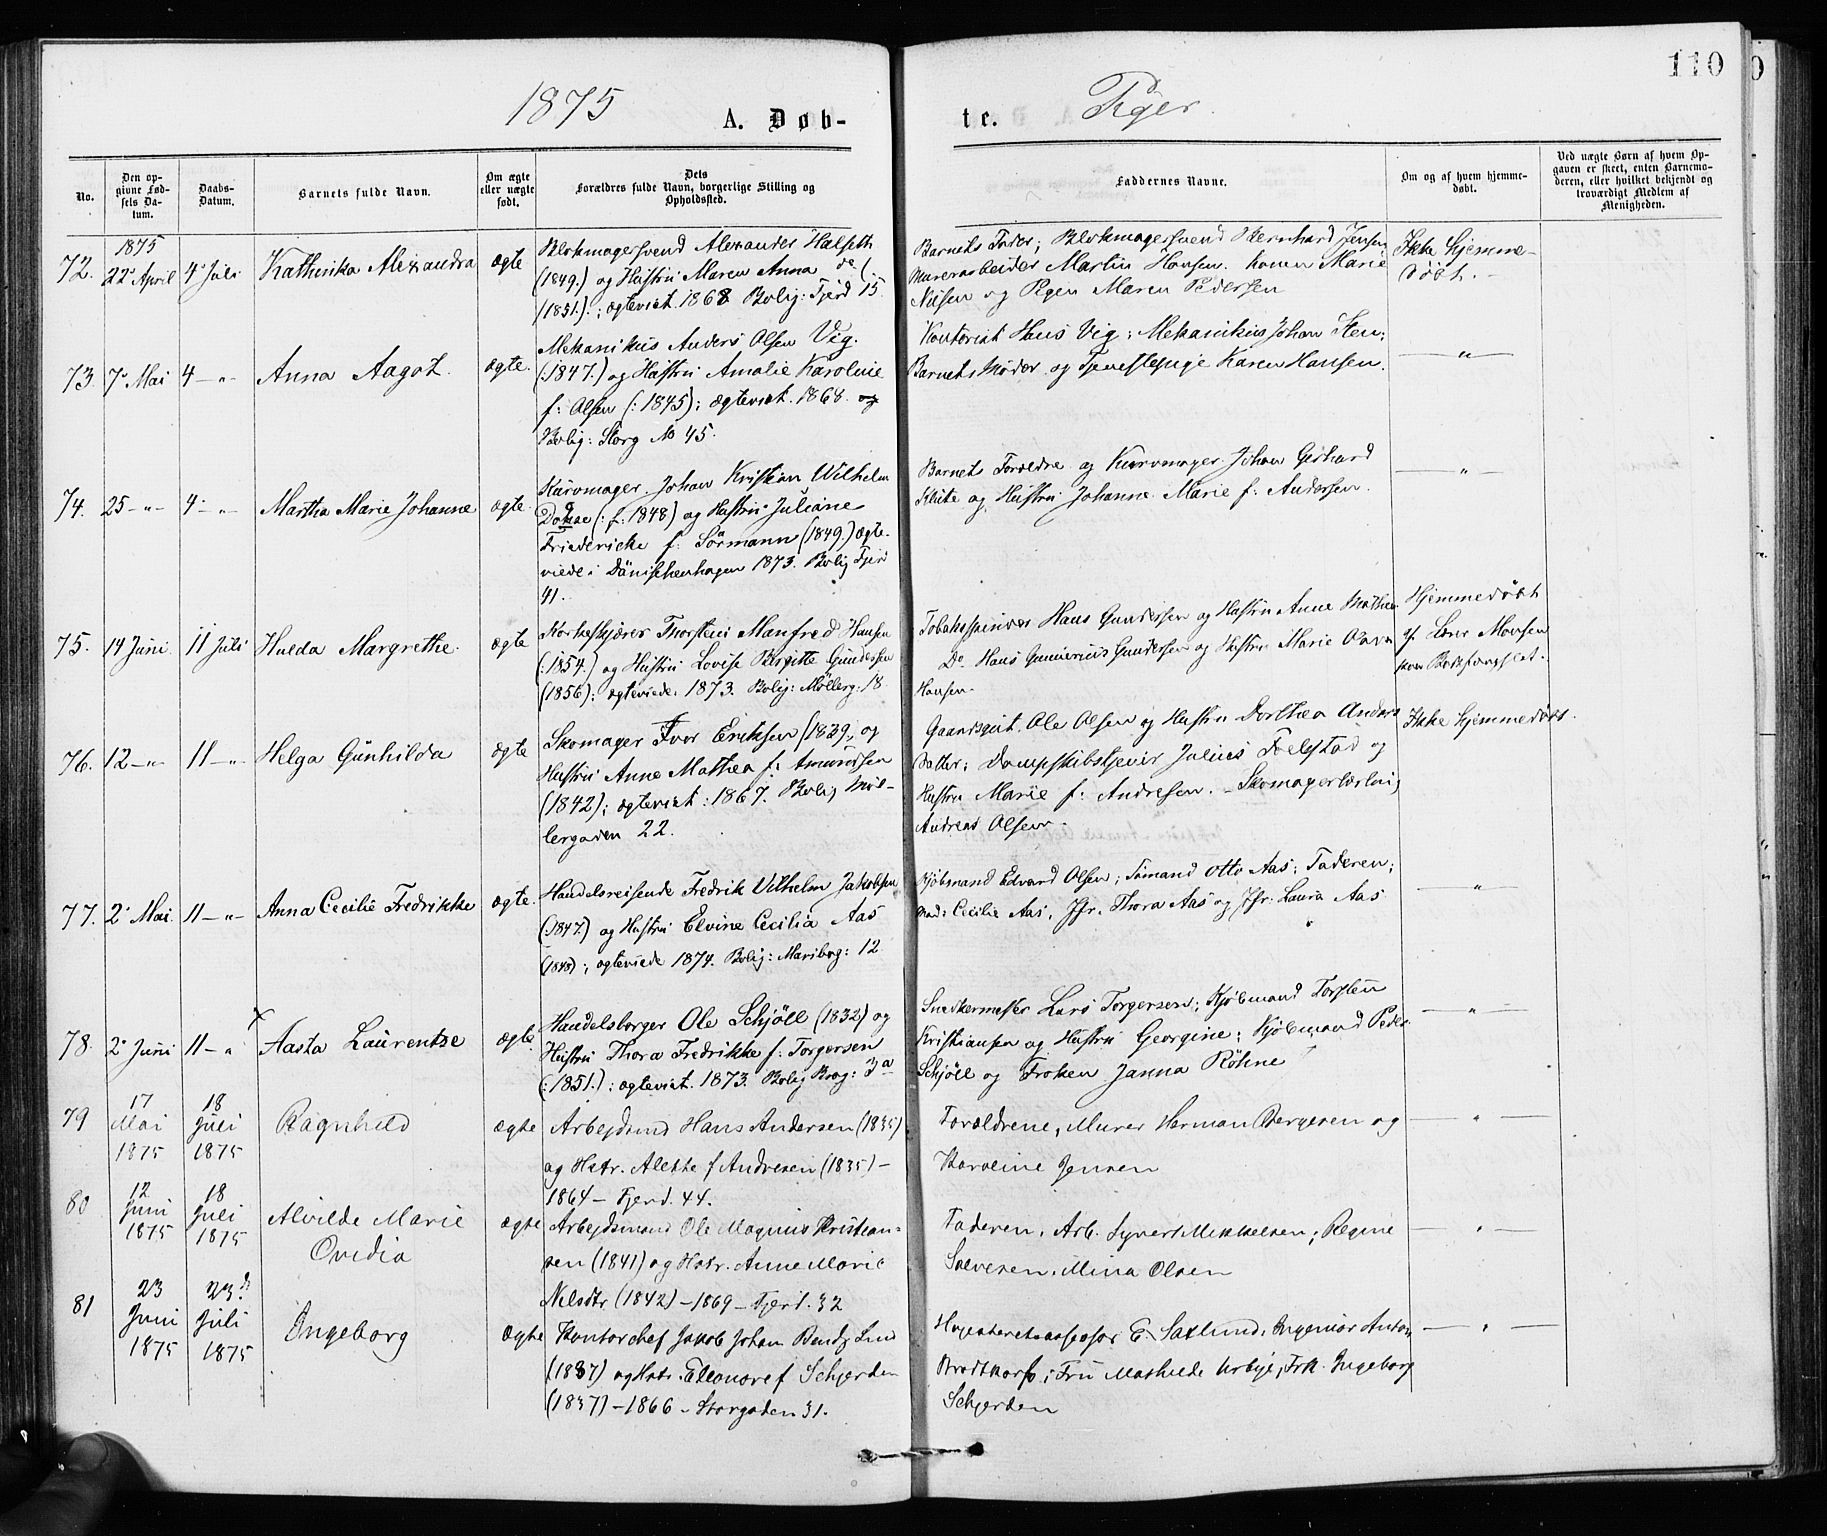 110
1875
A. Døb-
te.
Piger.
No.
Den opgivne Fødsels Datum.
Daabs-Datum.
Barnets fulde Navn.
Om ægte eller uægte født.
Dets Forældres fulde Navn, borgerlige Stilling og Opholdssted.
Faddernes Navne.
Om og af hvem hjemmedøbt.
Ved uægte Børn af hvem Opgaven er skeet, enten Barnemoderen, eller hvilket bekjendt og troværdigt Medlem af Menigheden.
1875
72. 22 April 4 Juli Kathinka Alexandra ægte
Blokmagersvend Alexander Halseth
(1849.) og Hustru Maren Anna
(1851.).; ægteviet. 1868 Bolig: Fjerd 15.
Barnets Fader; Blokmagersvend Bernhard Jensen
Murerarbeider Martin Hansen. Konen Marie
Nilsen og Pigen Maren Pedersen
Ikke hjemme-
døbt. -
73. 7 Mai 4 -"- Anna Aagot. ægte.
Mekanikus Anders Olsen Vig.
(:1847.) og Hustru Amalie Karoline
f: Olsen (: 1845); ægteviet. 1868. og
Bolig: Storg No 45.
Kontorist Hans Vig; Mekanikus Johan Sten;
Barnets Moder og Tjenestepige Karen Hansen.
-"-
74. 25 -"- 4 -"- Martha Marie Johanne ægte.
Kurvmager. Johan Kristian Wilhelm
(: f: 1848) og Hustru Juliane
Friedericke f: Sörmann (1849.) ægte-
viede i Dänischenhagen 1873. Bolig Fjerd
41.
Barnets Forældre og Kurvmager Johan Gerhard
Klüte og Hustru Johanne Marie f: Andersen.
-"-
75. 14 Juni. 11 Juli Hulda Margrethe. ægte
Korkeskjærer Thorsten Manfred Hansen
(:1854.) og Hustru Lovise Birgitte Gundersen
(1856); ægteviede. 1873. Bolig: Möllerg: 18.
Tobaksspinder Hans Gundersen og Hustru Anne Mathea
Do. Hans Gunerius Gundersen og Hustru Marie
Hansen.
Hjemmedøbt
af
76. 12 -"- 11 -"- Helga Gunhilda ægte
Skomager Iver Eriksen (1839, og
Hustru Anne Mathea f: Amundsen
(1842); ægteviet: 1867. Bolig Möl-
lergaden 22.
Gaardsgut. Ole Olsen og Hustru Dorthea Anders
Datter; Dampskibsskriver Julius Foelstad og
Hustru Marie f: Andresen. - Skomagerlærling
Andreas Olsen.
Ikke hjemmedøbt.
77. 2 Mai 11 -"- Anna Cecilie Fredrikke ægte.
Handelsreisende Fredrik Vilhelm Jakobsen
(:1847) og Hustru Elvine Cecilia Aas
(1848); ægteviede 1874. Bolig: Mariborg: 12
Kjøbmand Edvard Olsen; Sömand Otto Aas; Faderen;
Mad: Cecilie Aas, Jfr. Thora Aas og Jfr. Laura Aas
-"-
x
78. 2 Juni 11 -"- Aasta Laurentze ægte.
Handelsborger Ole Schjöll (1832) og
Hustru Thora Fredrikke f: Torgersen
(:1851.); ægteviet. 1873. Bolig Brog: 3a
Snedkermester Lars Torgersen; Kjøbmand Torsten
Kristiansen og Hustru Georgine; Kjøbmand Peder
Schjöll og Froken Janna Röhne
-"-
79 17 Mai 1875 18 Juli 1875 Ragnhild ægte
Arbejdsmd Hans Andersen (1835)
og Hstr. Alette f Andresen (1835) -
1864 - Fjerd. 44.
Forældrene, Murer Herman Børgesen og
Karoline Jensen
-"-
80 12 Juni 1875 18 Juli 1875 Alvilde Marie
Ovidia
ægte
Arbejdsmand Ole Magnus Kristian-
sen (1841) og Hstr. Anne Marie
Nelsdtr (1842) - 1869 - Fjerd. 32
Faderen, Arb. Syvert Mikkelsen; Regine
Salvesen, Mina Olsen
-"-
81 23 Juni 1875 23 Juli 1875 Ingeborg ægte
Kontorchef Jakob Johan Bendz Lund
(1837) og Hstr. Eleonore f Schjerden
(1837) - 1866 - Storgaden 31.
Højesteretsassessor E. Saxlund, Ingeniør Anton
Brodtkorb; Fru Mathilde Urbye, Frk. Ingeborg
Schjerden
-"-